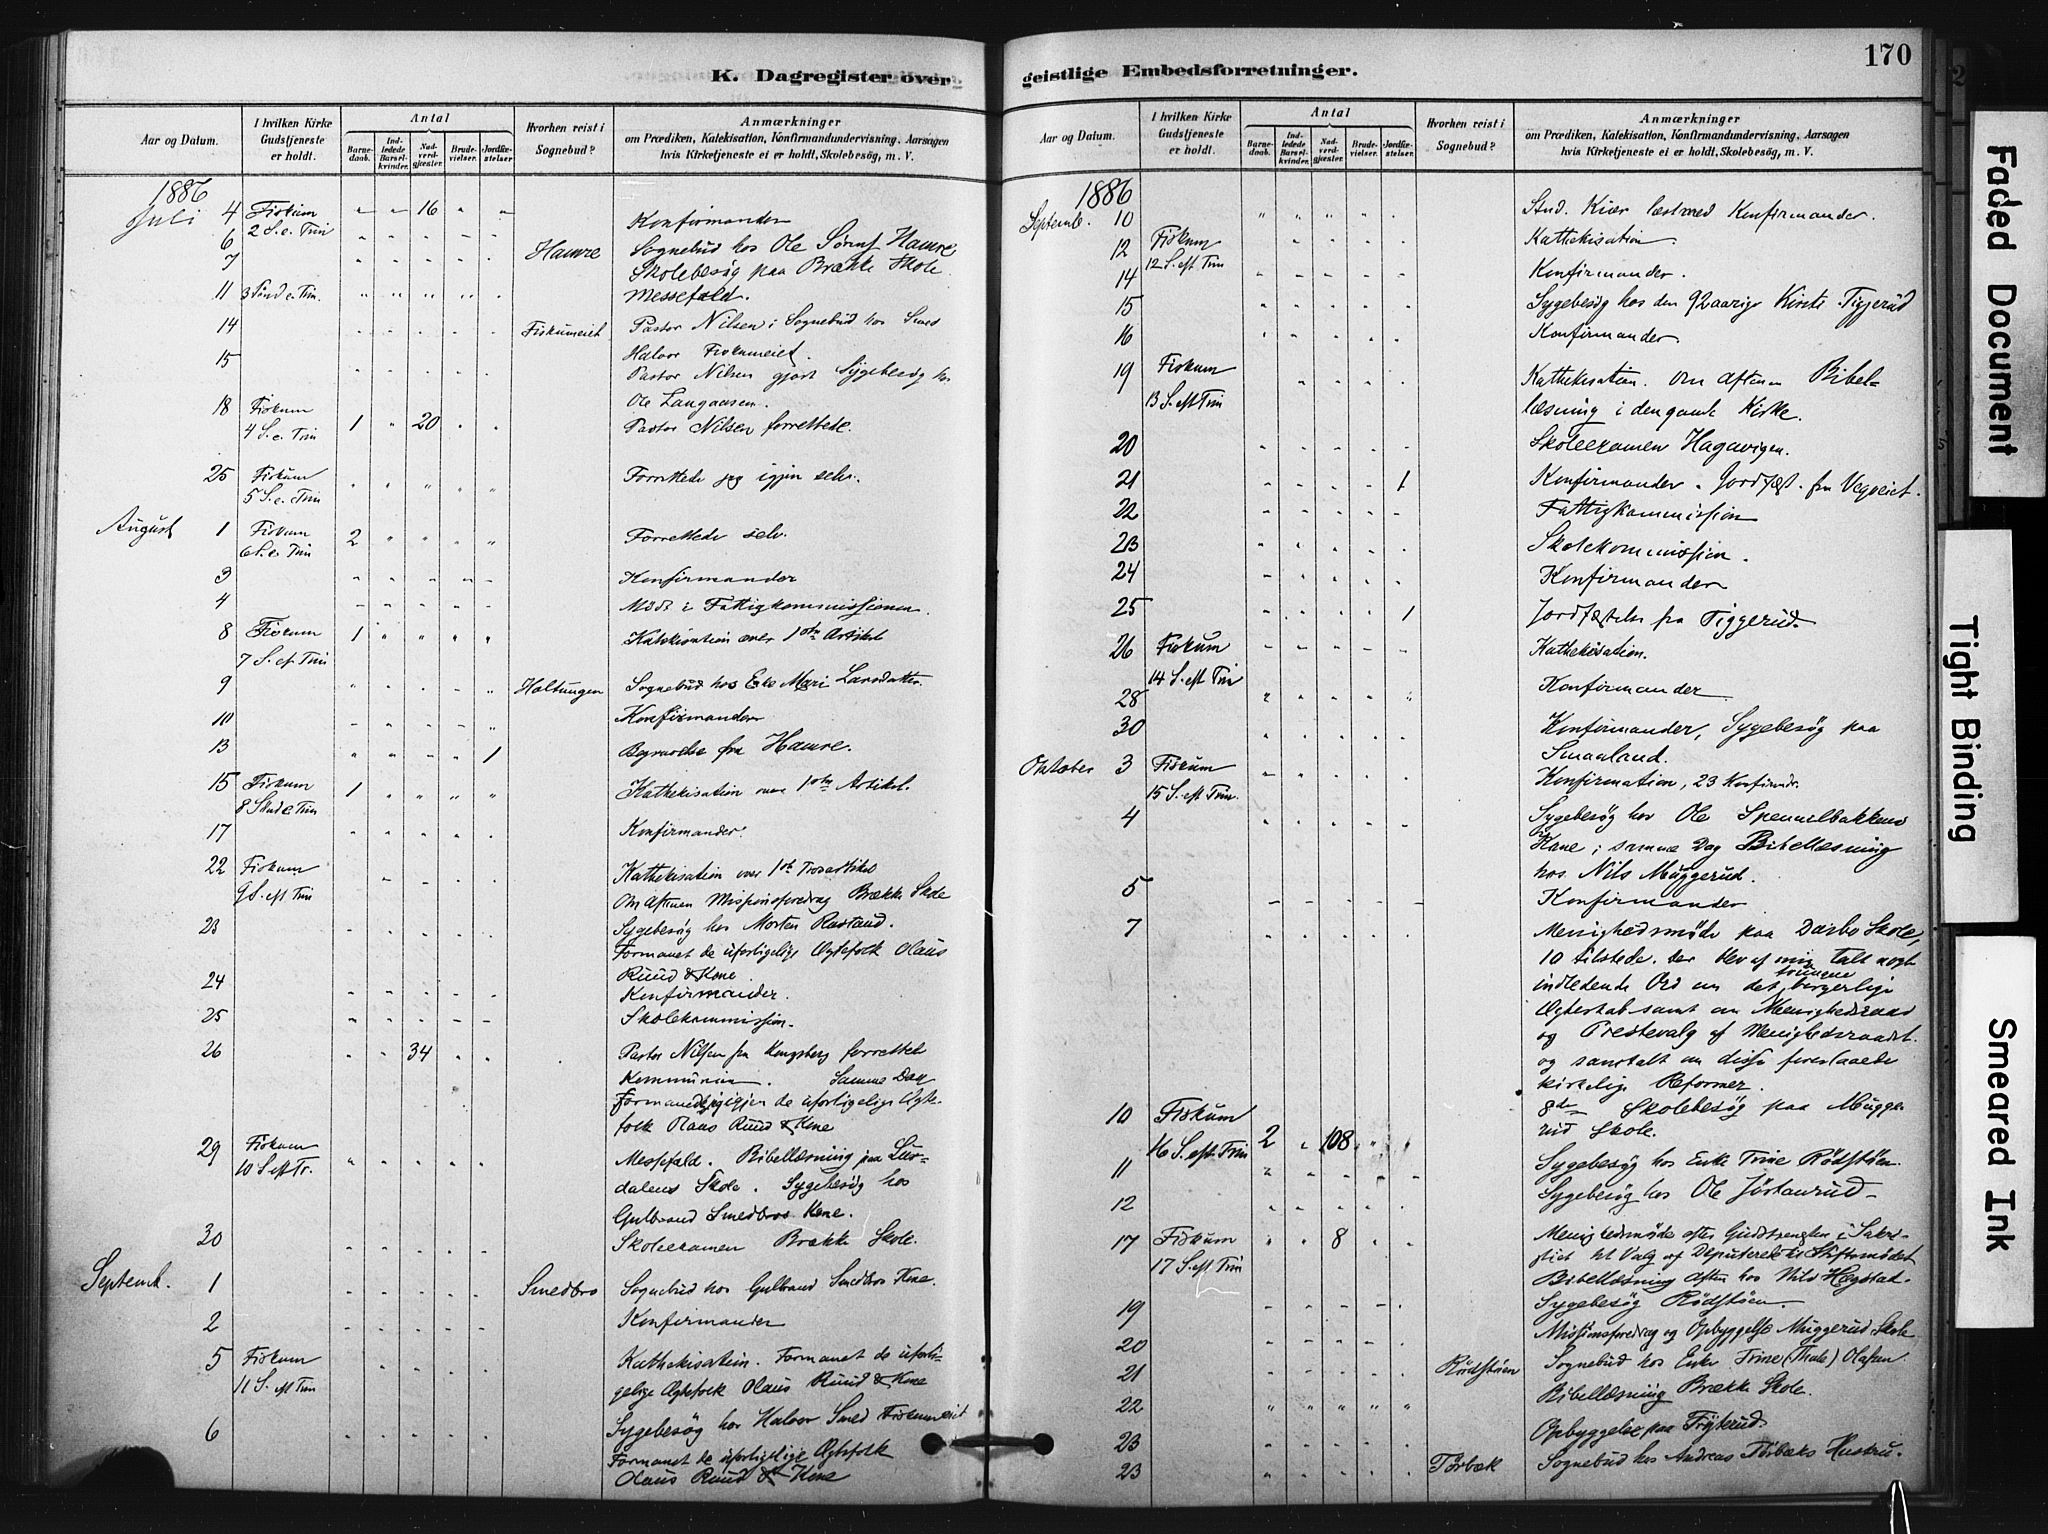 K. Dagregister over
Aar og Datum.
I hvilken Kirke Gudstjeneste er holdt.
Antal
Barnedaab.
Indledede Barselkvinder.
Nadverdgjæster.
Brudevielser.
Jordfæstelser.
Hvorhen reist i Sognebud?
Anmærkninger
om Prædiken, Katekisation, Konfirmandundervisning, Aarsagen
hvis Kirketjeneste ei er holdt, Skolebesøg, m. V.
1886
Juli 4 Fiskum 16
2 S. e. Trin
6 Konfirmander
7 Hamre Sognebud hos Ole Hamre
Skolebesøg paa Brække Skole.
11 3 Sønd e. Trin. Messefald.
14 Fiskumeiet Pastor Nilsen i Sognebud hos Smed
Halvor Fiskumeiet.
15 Pastor Nilsen gjort Sygebesøg hos
Ole Langaasen.
18 Fiskum 1 20 Pastor Nilsen forrettede.
4 S. e. Trin
25 Fiskum Forrettede jeg igjen selv.
5 S. e. Trin
August 1 Fiskum 2 Forrettede selv.
6 S. e. Trin
3 Konfirmander
4 Møde i Fattigkommissionen.
8 Fiskum 1 Katekisation over 1ste Artikel
7 S. ef. Trin
9 Holtungen Sognebud hos Enke Mari Larsdatter.
10 Konfirmander
13 1 Begravelse fra Hamre.
15 Fiskum 1 Kathekisation over 1ste Artikel.
8 Sønd e Trin
17 Konfirmander.
22 Fiskum Kathekisation over 1ste Trosartikel
9 S. eft Trin Om Aftenen Missionsforedrag Brække Skole
23 Sygebesøg hos Morten Rastad.
Formanet de uforligelige Ægtefolk Olaus
Ruud & Kone.
24 Konfirmander.
25 Skolekommission.
26 34 Pastor Nilsen fra Kongsberg forrettet
Kommunion. Samme Dag
Formanede jeg igjen de uforligelige Ægtefolk
Olaus Ruud & Kone
29 Fiskum Messefald. Bibellæsning paa Lurdalens
10 S. eft Tr. Skole. Sygebesøg hos
Gulbrand Smedbros Kone.
30 Skoleexamen Brække Skole.
Septemb. 1 Smedbro Sognebud hos Gulbrand Smedbros Kone.
2 Konfirmander
5 Fiskum Kathekisation. Formanet de uforligelige
11 S. eft Trin Ægtefolk Olaus Ruud & Kone
6 Sygebesøg hos Halvor Smed Fiskumeiet
Formanet de uforligelige Ægtefolk
Olaus Ruud & Kone
geistlige Embedsforretninger.
170
Aar og Datum.
I hvilken Kirke Gudstjeneste er holdt.
Antal
Barnedaab.
Indledede Barselkvinder.
Nadverdgjæster.
Brudevielser.
Jordfæstelser.
Hvorhen reist i Sognebud?
Anmærkninger
om Prædiken, Katekisation, Konfirmandundervisning, Aarsagen
hvis Kirketjeneste ei er holdt, Skolebesøg, m. V.
1886
Septemb. 10 Stud. Kiær læst med Konfirmander.
12 Fiskum Kathekisation.
12 S. eft Trin
14 Konfirmander.
15 Sygebesøg hos den 92 aarige Kirsti Tiggerud
16 Konfirmander.
19 Fiskum Kathekisation. Om Aftenen Bibellæsning
13 S. eft Trin i den gamle Kirke.
20 Skoleexamen Hagavigen.
21 1 Konfirmander. Jordfæst. fra
22 Fattigkommission
23 Skolekommission.
24 Konfirmander
25 1 Jordfæstelse fra Tiggerud.
26 Fiskum Kathekisation.
14 S. eft Trin
28 Konfirmander
30 Konfirmander, Sygebesøg paa
Smaaland.
Oktober 3 Fiskum Konfirmation, 23 Konfirmdr.
15 S. eft Trin.
4 Sygebesøg hos Ole Spennelbakkens
Kone; samme Dag Bibellæsning
hos Nils Muggerud.
5 Konfirmander
7 Menighedsmøde paa Darbo Skole,
10 tilstede. Der blev af mig talt nogle
indledende Ord om det tvungne borgerlige
Ægteskab samt om Menighedsraad
og Prestevalg af Menighedsraadet.
og samtalt om disse foreslaaede
kirkelige Reformer.
8de Skolebesøg paa Muggerud
Skole.
10 Fiskum 2 108
16 S. eft Trin
11 Sygebesøg hos Enke Trine Rødstøen.
12 Sygebesøg hos Ole
17 Fiskum 8 Menighedsmøde efter Gudstjenesten i Sakristiet
17 S. eft Trin til Valg af Deputerede til Stiftsmødet
Bibellæsning Aften hos Nils Hægstad.
19 Sygebesøg Rødstøen.
20 Missionsforedrag og Opbyggelse Muggerud Skole
21 Rødstøen Sognebud hos Enke Trine (Thale) Olafsen
22 Bibellæsning Brække Skole.
23 Opbyggelse paa Frøkerud.
23 Tørbæk Sognebud hos Andreas Tørbæks Hustru.
Faded Document
Tight Binding
Smeared Ink